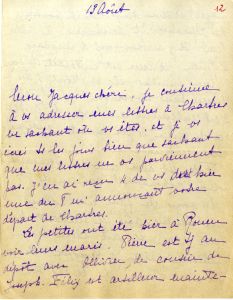 19 Août
12
Jacques chéri, je continue
à vous adresser mes lettres à Chartres
ne sachant où vs êtes, et je vs
écris ts les jours bien que sachant
que mes lettres ne vs parviennent
pas. J'en ai reçu de vs hier
une du 7 m'annonçant votre
départ de Chartres.
Les petites ont été hier à Rouen
voir leurs maris. Pierre est là au
dépôt avec Ollivier du cousin de
Joseph. Félix est artilleur mainte-